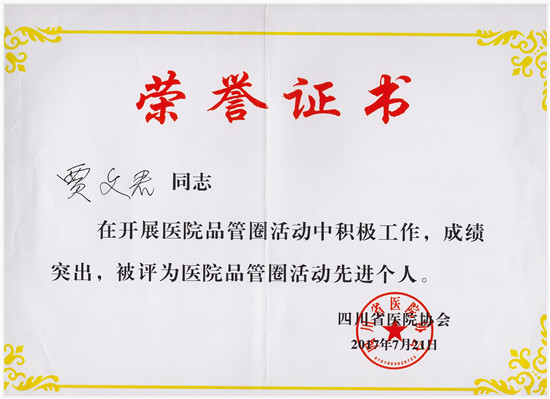 荣誉证书
贾文君 同志
在开展医院品管圈活动中积极工作，成绩
突出，被评为医院品管圈活动先进个人。
四川省医院协会
2017年7月21日
四川省医院协会